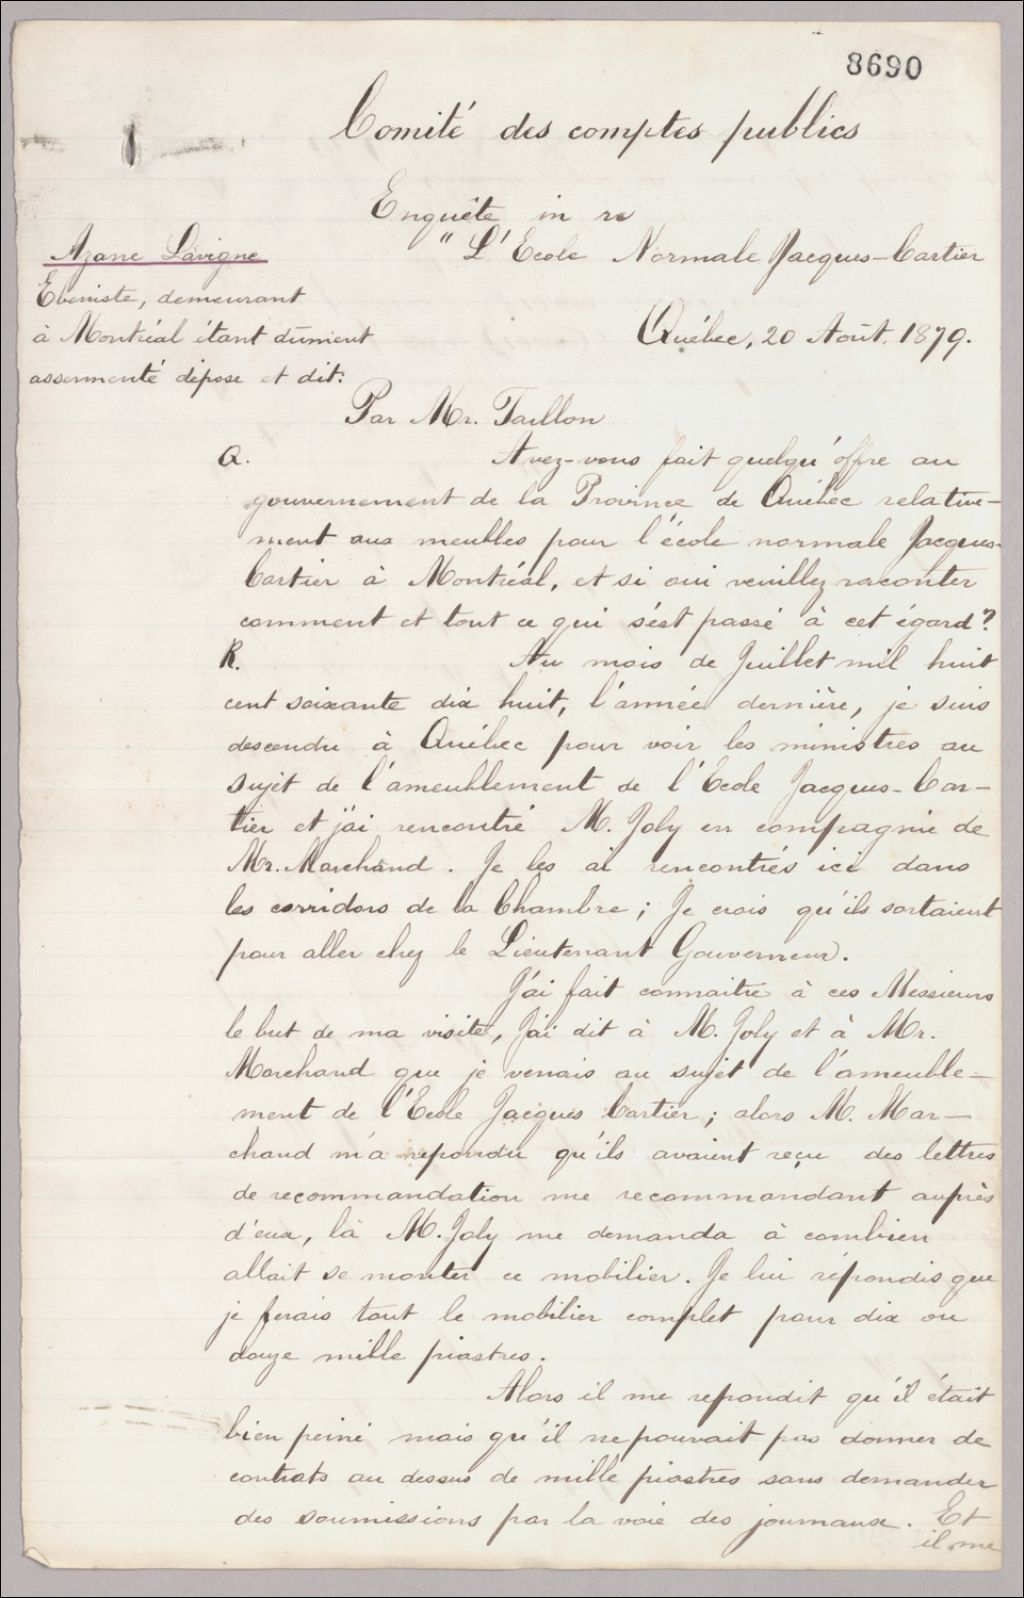 8690
Comité des comptes publics
Enquête in re
"L'Ecole Normale Jacques-Cartier
Azarie Lavigne
Ebeniste, demeurant
à Montréal étant dûment
assermenté dépose et dit:
Québec, 20 Août, 1879.
Par Mr. Taillon
Q. Avez-vous fait quelqu'offre au
gouvernement de la Province de Québec relative-
ment aux meubles pour l'école normale Jacques-
Cartier à Montréal, et si oui veuillez raconter
comment et tout ce qui s'est passé à cet égard?
R. Au mois de Juillet mil huit
cent soixante dix huit, l'année dernière, je suis
descendu à Québec pour voir les ministres au
sujet de l'ameublement de l'Ecole Jacques-Car-
tier et j'ai rencontré M. Joly en compagnie de
Mr. Marchand. Je les ai rencontrés ici dans
les corridors de la Chambre; Je crois qu'ils sortaient
pour aller chez le Lieutenant Gouverneur.
J'ai fait connaitre à ces Messieurs
le but de ma visite, J'ai dit à M. Joly et à Mr.
Marchand que je venais au sujet de l'ameuble-
ment de l'Ecole Jacques Cartier; alors M. Mar-
chand m'a repondu qu'ils avaient reçu des lettres
de recommandation me recommandant auprès
d'eux, là M. Joly me demanda à combien
allait se monter ce mobilier. Je lui répondis que
je ferais tout le mobilier complet pour dix ou
douze mille piastres.
Alors il me repondit qu'il était
bien peiné mais qu'il ne pouvait pas donner de
contrats au dessus de mille piastres sans demander
des soumissions par la voie des journaux. Et
il me